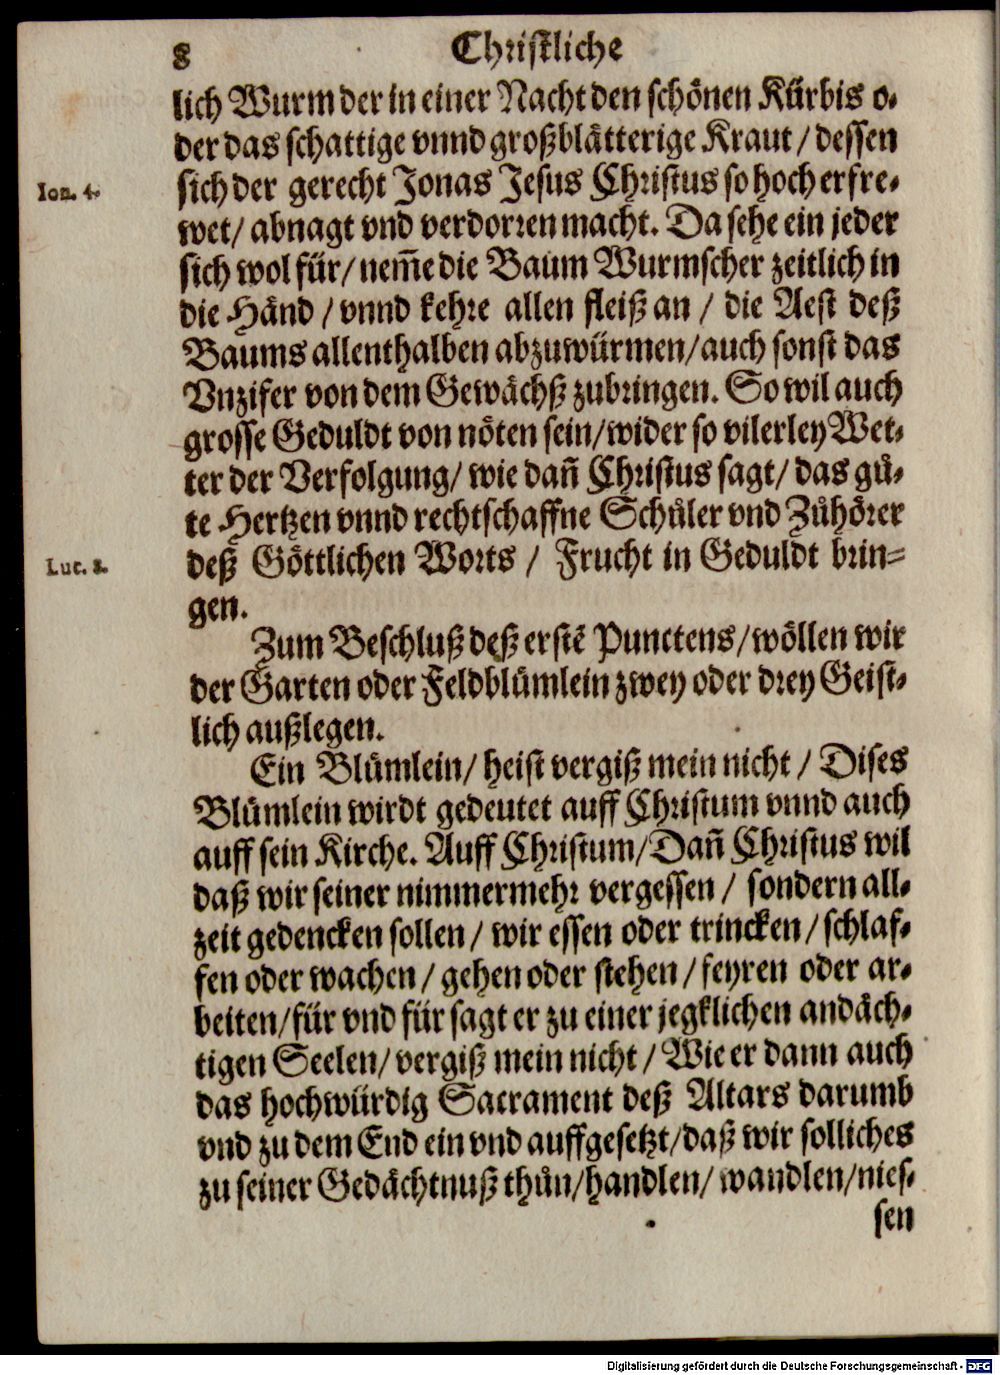 8 Christliche
lich Wurm der in einer Nacht den schönen Kürbis o-
der das schattige vnnd großblätterige Kraut / dessen
Ion. 4. sich der gerecht Jonas Jesus Christus so hoch erfre-
wet / abnagt vnd verdorren macht. Da sehe ein jeder
sich wol für / nem̃e die Baum Wurmscher zeitlich in
die Händ / vnnd kehre allen fleiß an / die Aest deß
Baums allenthalben abzuwürmen / auch sonst das
Vnzifer von dem Gewächß zubringen. So wil auch
grosse Geduldt von nöten sein / wider so vilerley Wet-
ter der Verfolgung / wie dañ Christus sagt / das gů-
te Hertzen vnnd rechtschaffne Schůler vnd Zůhörer
Luc. 8. deß Göttlichen Worts / Frucht in Geduldt brin-
gen.
Zum Beschluß deß erstē Punctens / wöllen wir
der Garten oder Feldblümlein zwey oder drey Geist-
lich außlegen.
Ein Blümlein / heist vergiß mein nicht / Dises
Blümlein wirdt gedeutet auff Christum vnnd auch
auff sein Kirche. Auff Christum / Dañ Christus wil
daß wir seiner nimmermehr vergessen / sondern all-
zeit gedencken sollen / wir essen oder trincken / schlaf-
fen oder wachen / gehen oder stehen / feyren oder ar-
beiten / für vnd für sagt er zu einer jegklichen andäch-
tigen Seelen / vergiß mein nicht / Wie er dann auch
das hochwürdig Sacrament deß Altars darumb
vnd zu dem End ein vnd auffgesetzt / daß wir solliches
zu seiner Gedächtnuß thůn / handlen / wandlen / nies-
sen
Digitalisierung gefördert durch die Deutsche Forschungsgemeinschaft - DFG